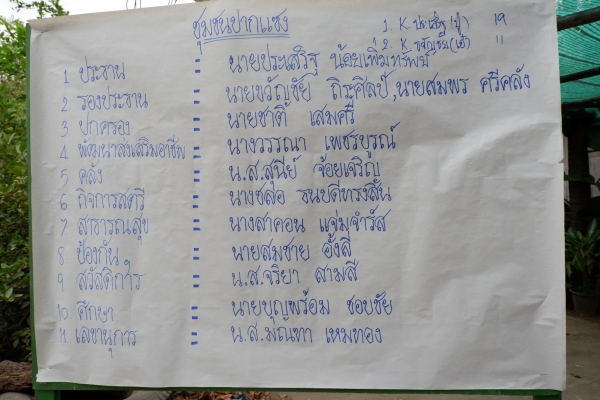 ชุมชนปากแซง
1. K ประเสริฐ (ปู่) 19
2. K ขวัญชัย (เต้) 11
1 ประธาน : นายประเสริฐ น้อยเพิ่มทรัพย์
2 รองประธาน : นายขวัญชัย ถิระศิลป์, นายสมพร ศรีคลัง
3 ปกครอง : นายชาติ เสมศรี
4 พัฒนาส่งเสริมอาชีพ : นางวรรณา เพชรบูรณ์
5 คลัง : น.ส.สุนีย์ จ้อยเจริญ
6 กิจการสตรี : นางชลอ ธนบดีทรงสิน
7 สาธารณสุข : นางสาคอน แจ่มจำรัส
8 ป้องกัน : นายสมชาย อั้งลี่
9 สวัสดิการ : น.ส.จริยา สามสี
10 ศึกษา : นายบุญพร้อม ชอบชัย
11 เลขานุการ : น.ส.มณฑา เหมทอง